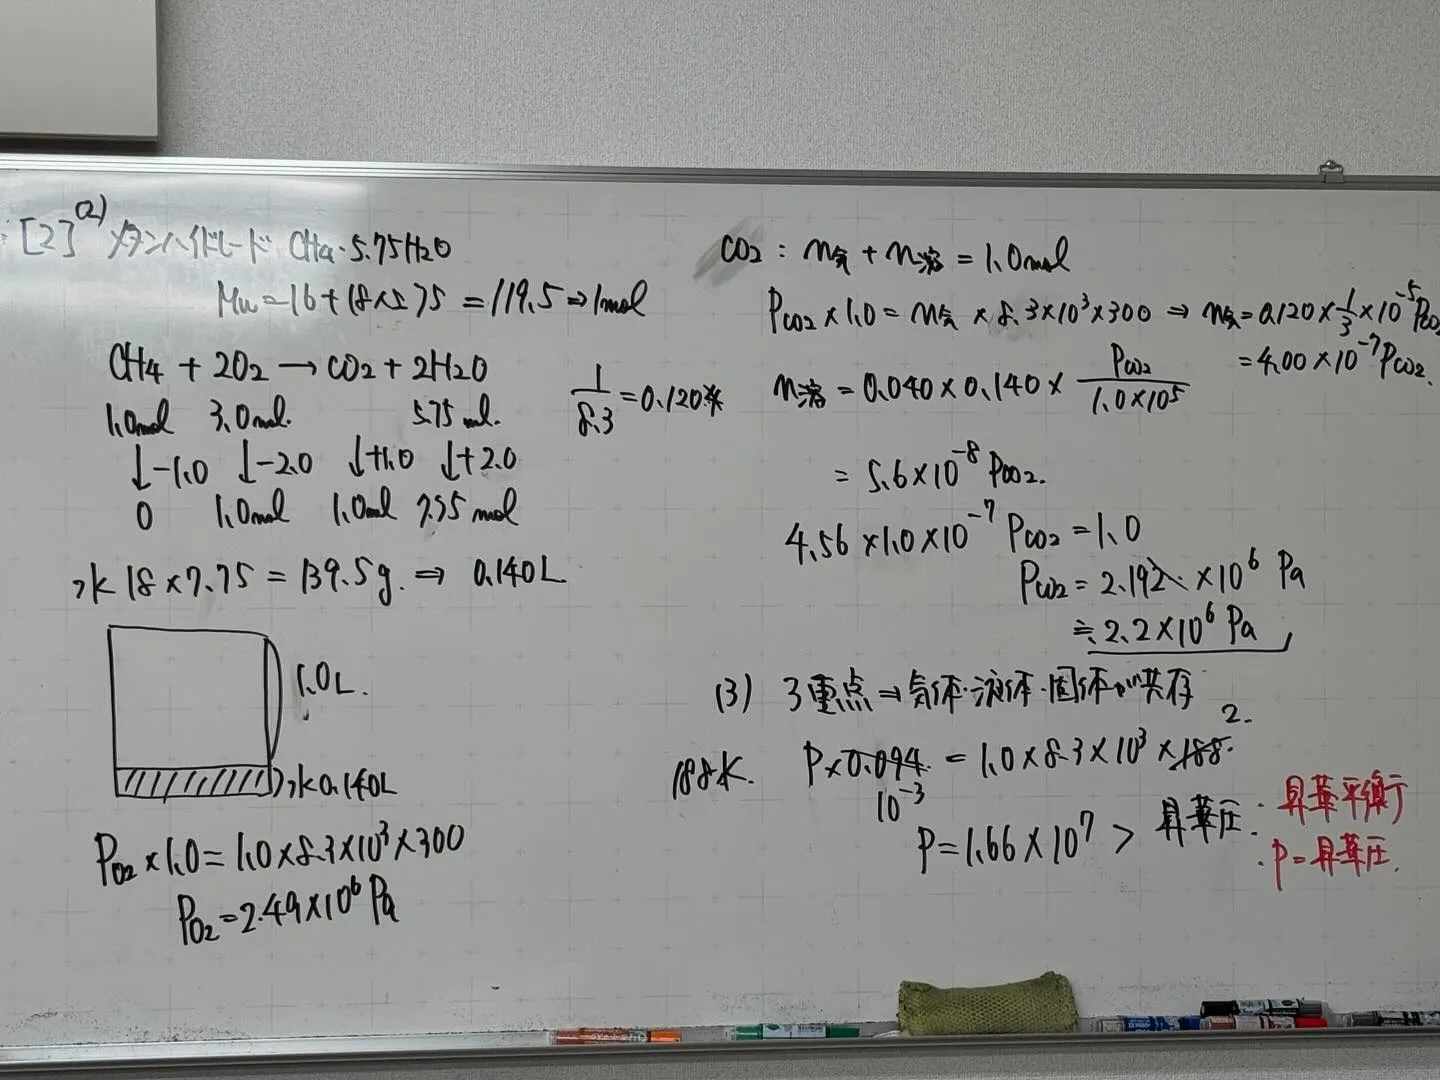 [2](2) メタンハイドレード CH4・5.75H2O
Mw=16+18×5.75=119.5⇒1mol
CH4 + 2O2 → CO2 + 2H2O
1.0mol 3.0mol. 5.75mol.
↓-1.0 ↓-2.0 ↓+1.0 ↓+2.0
0 1.0mol 1.0mol 7.75mol
1/8.3=0.120※
水 18×7.75=139.5g. ⇒ 0.140L
1.0L.
水0.140L
PO2×1.0=1.0×8.3×10^3×300
PO2=2.49×10^6 Pa
CO2: n気+n溶=1.0mol
PCO2×1.0=n気×8.3×10^3×300 ⇒ n気=0.120×1/3×10^-5PCO2
=4.00×10^-7PCO2.
n溶=0.040×0.140×PCO2/1.0×10^5
=5.6×10^-8PCO2.
4.56×1.0×10^-7PCO2=1.0
PCO2=2.192..×10^6 Pa
≒2.2×10^6 Pa
(3) 3重点⇒気体・液体・固体が共存
188K. P×0.094=1.0×8.3×10^3×188. 2.
10^-3
P=1.66×10^7 > 昇華圧
: 昇華平衡
. P=昇華圧.